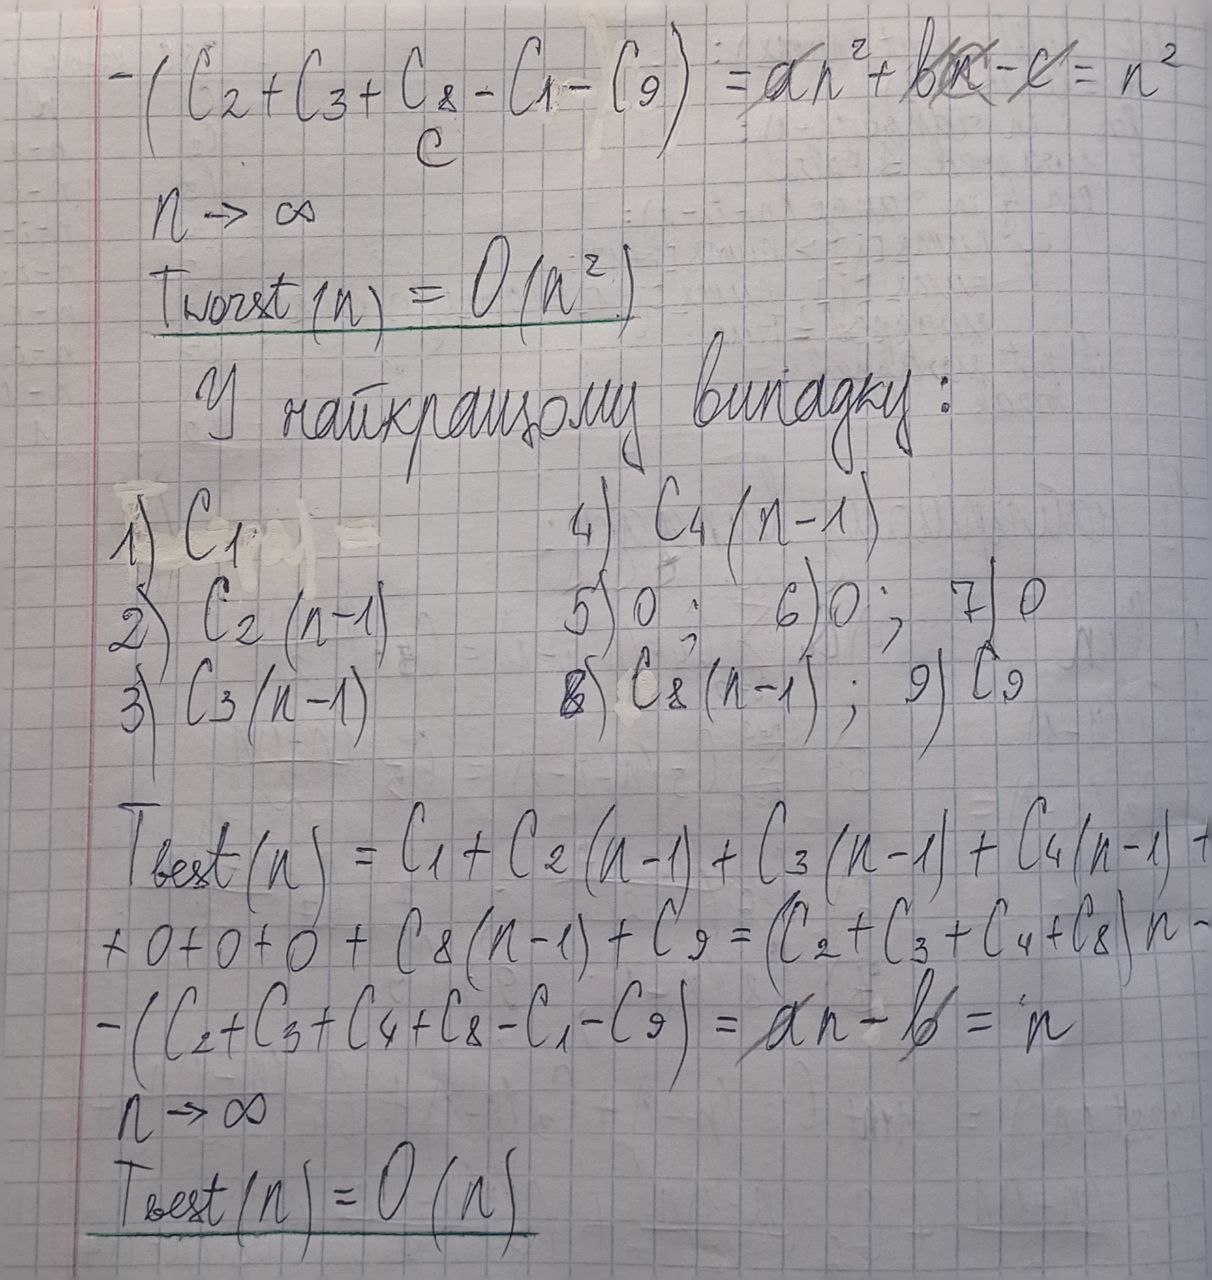 -(C₂+C₃+C₈-C₁-C₉) = an²+bn-c = n²
C
n → ∞
Tworst(n) = O(n²)
У найкращому випадку:
1) C₁ 4) C₄(n-1)
2) C₂(n-1) 5) 0; 6) 0; 7) 0
3) C₃(n-1) 8) C₈(n-1); 9) C₉
Tbest(n) = C₁+C₂(n-1)+C₃(n-1)+C₄(n-1)+
+0+0+0+C₈(n-1)+C₉=(C₂+C₃+C₄+C₈)n-
-(C₂+C₃+C₄+C₈-C₁-C₉) = an-b = n
n → ∞
Tbest(n) = O(n)